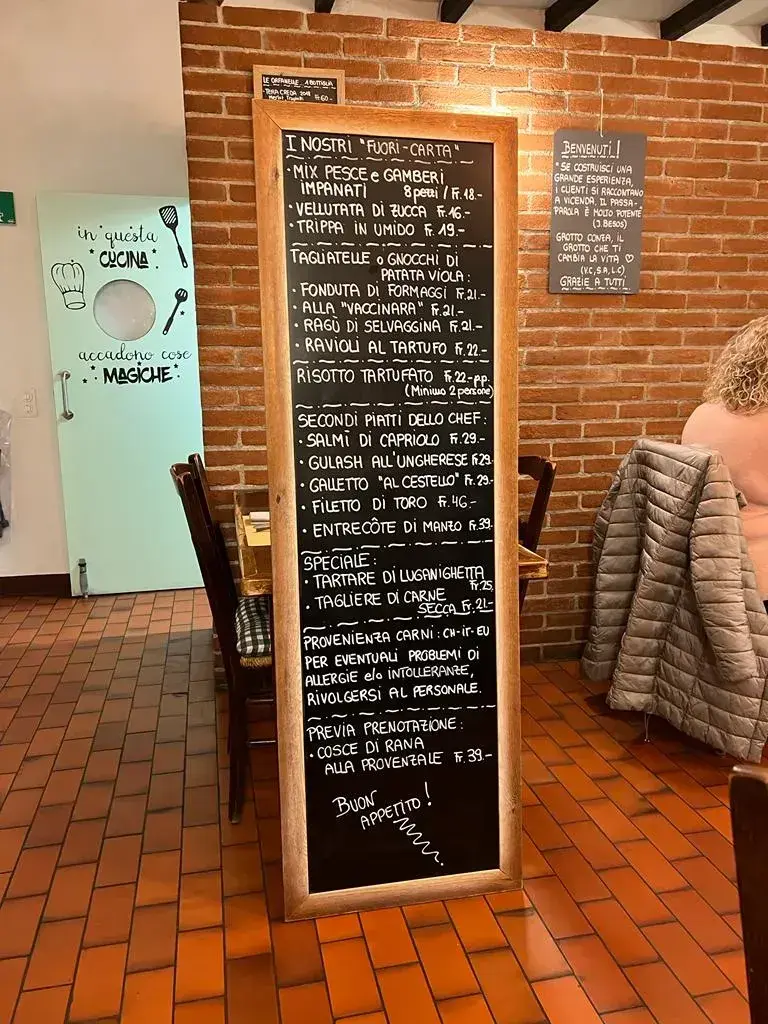 LE ORFANELLE... 1 BOTTIGLIA
Fr. 60.-
I NOSTRI "FUORI-CARTA"
• MIX PESCE e GAMBERI
IMPANATI 8 pezzi / Fr. 18.-
• VELLUTATA DI ZUCCA Fr. 16.-
• TRIPPA IN UMIDO Fr. 19.-
TAGLIATELLE o GNOCCHI DI
PATATA VIOLA:
• FONDUTA DI FORMAGGI Fr. 21.-
• ALLA "VACCINARA" Fr. 21.-
• RAGÙ DI SELVAGGINA Fr. 21.-
• RAVIOLI AL TARTUFO Fr. 22.-
RISOTTO TARTUFATO Fr. 22.- p.p.
(Minimo 2 persone)
SECONDI PIATTI DELLO CHEF:
• SALMÌ DI CAPRIOLO Fr. 29.-
• GULASH ALL'UNGHERESE Fr. 29.-
• GALLETTO "AL CESTELLO" Fr. 29.-
• FILETTO DI TORO Fr. 46.-
• ENTRECÔTE DI MANZO Fr. 39.-
SPECIALE:
• TARTARE DI LUGANIGHETTA
Fr. 25.
• TAGLIERE DI CARNE
SECCA Fr. 21.-
PROVENIENZA CARNI: CH-IT-EU
PER EVENTUALI PROBLEMI DI
ALLERGIE e/o INTOLLERANZE,
RIVOLGERSI AL PERSONALE.
PREVIA PRENOTAZIONE:
• COSCE DI RANA
ALLA PROVENZALE Fr. 39.-
BUON
APPETITO!
BENVENUTI!
"SE COSTRUISCI UNA
GRANDE ESPERIENZA,
I CLIENTI SI RACCONTANO
A VICENDA. IL PASSA-
PAROLA È MOLTO POTENTE
(J. BESOS)
GROTTO CONZA, IL
GROTTO CHE TI
CAMBIA LA VITA ♡
(V.C, S.A, L.C)
GRAZIE A TUTTI
in questa
CUCINA
accadono cose
MAGICHE